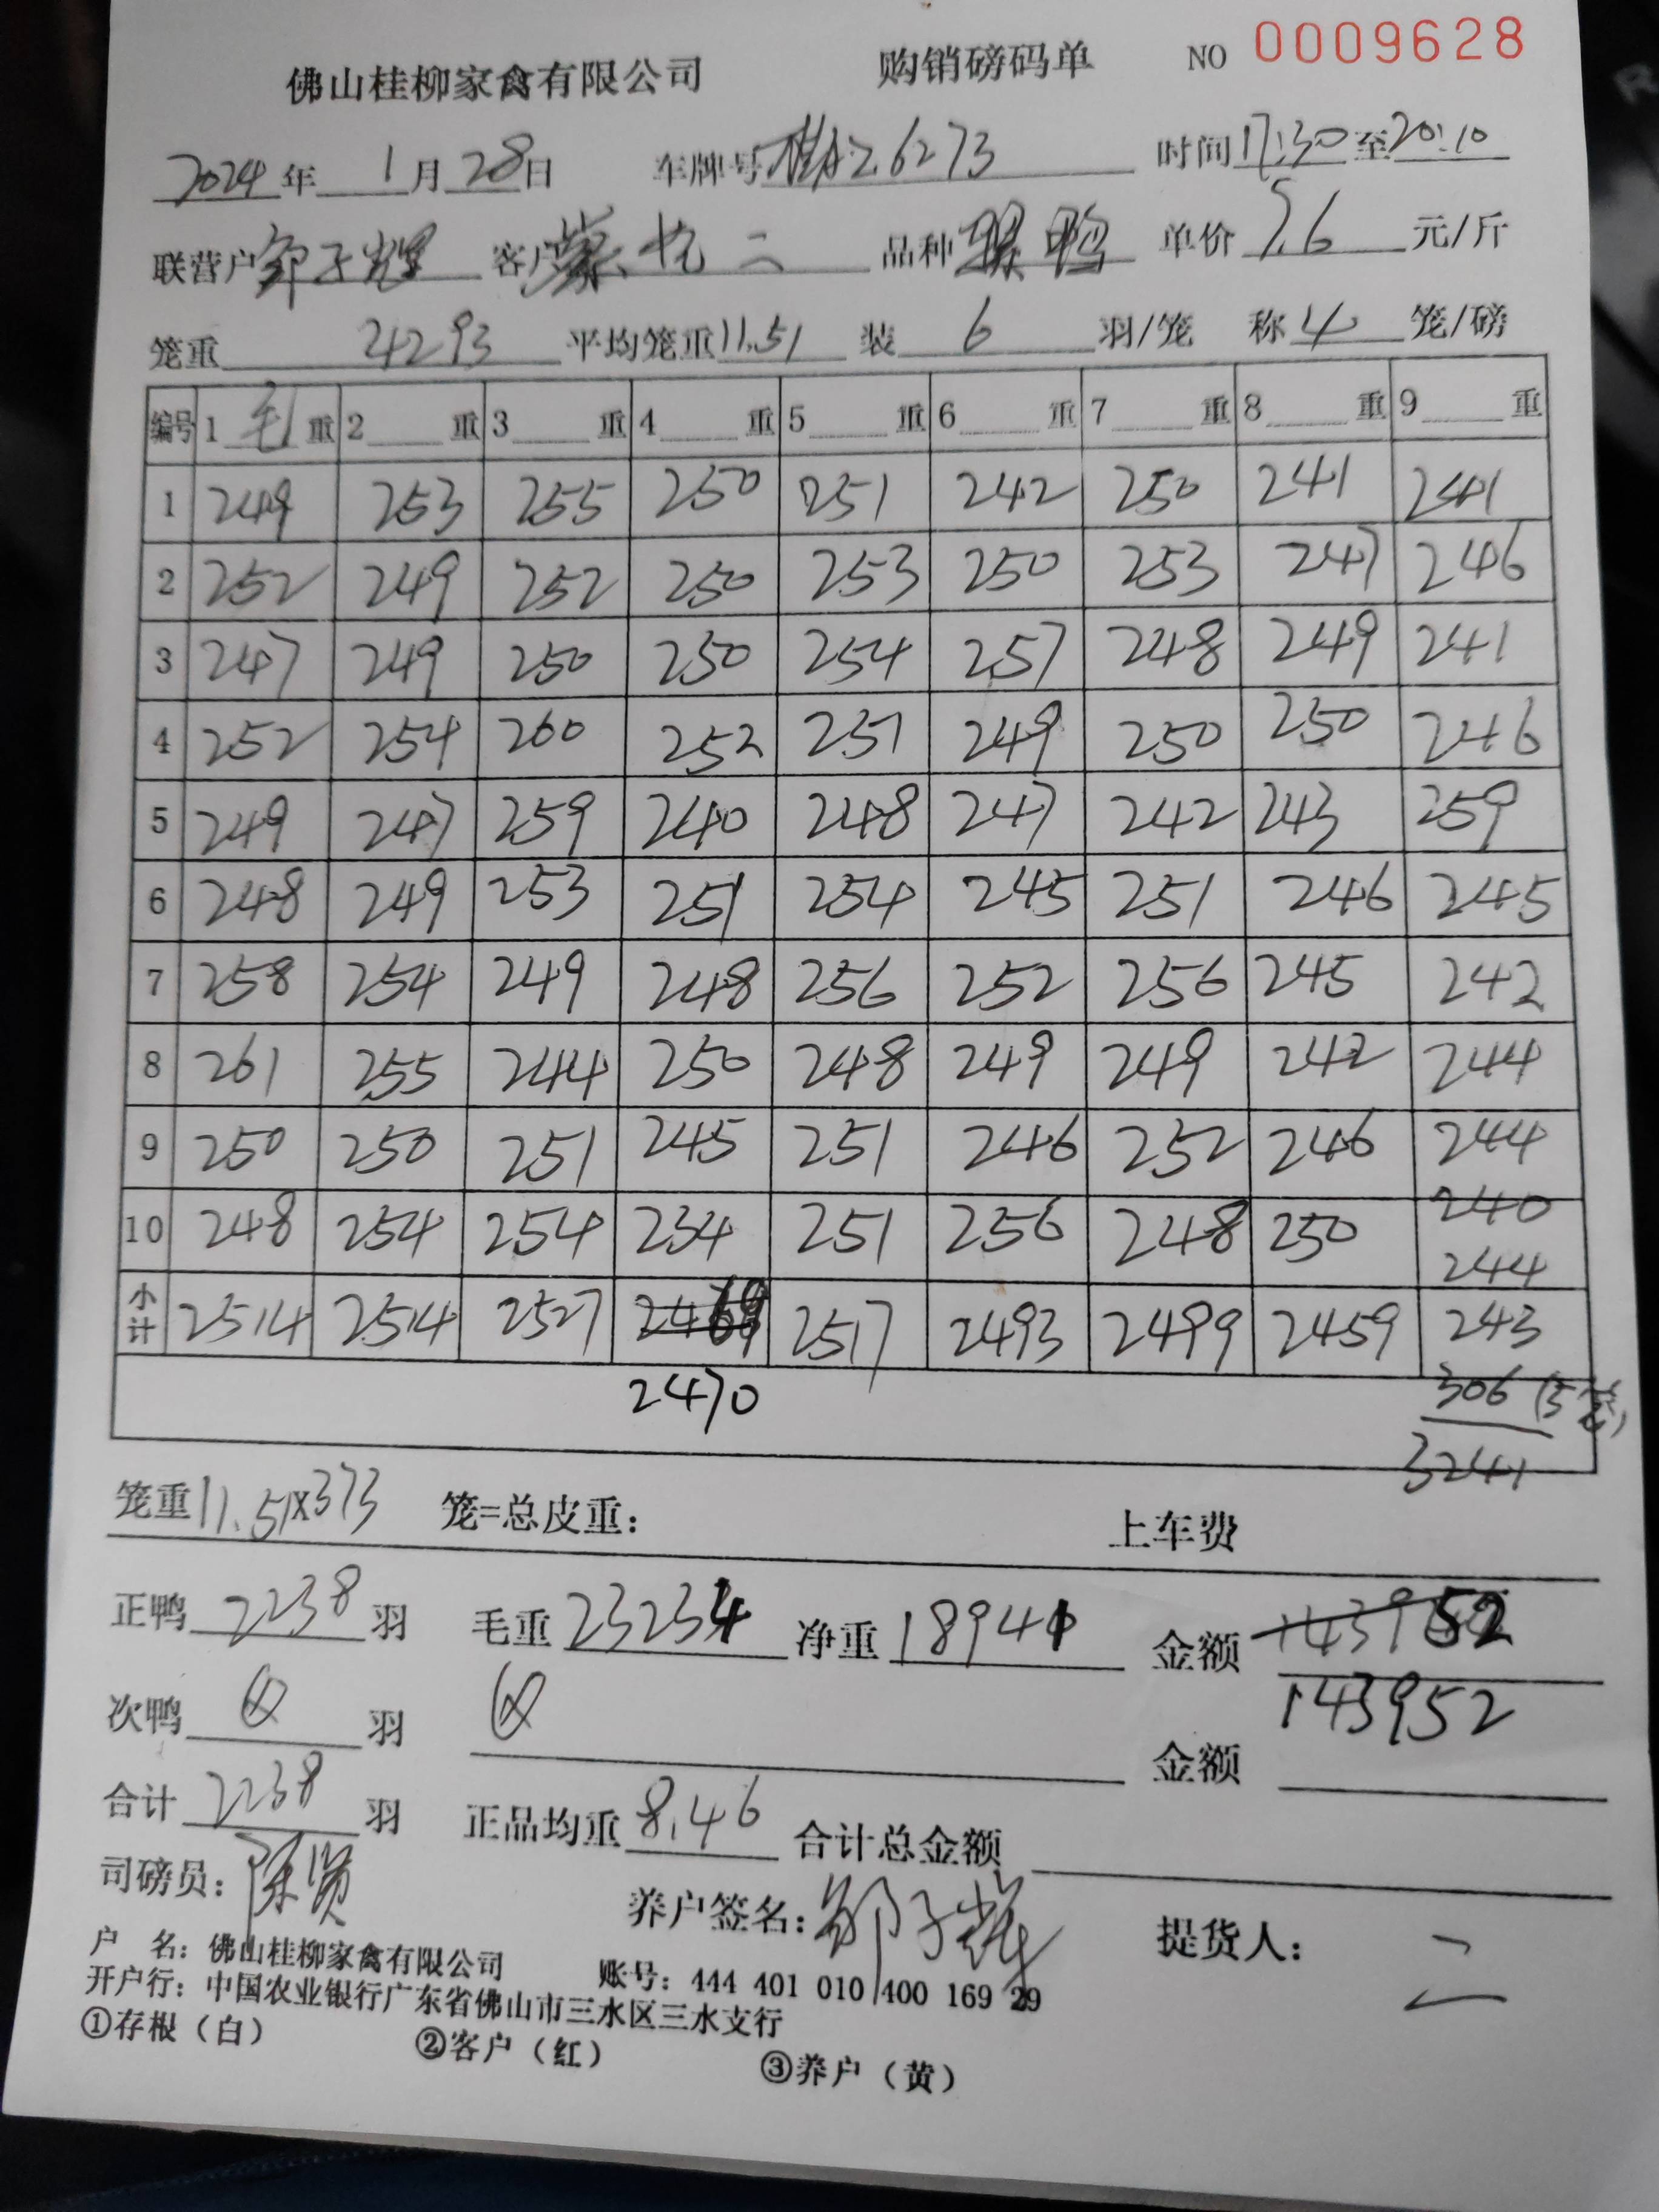 佛山桂柳家禽有限公司 购销磅码单 NO 0009628
2024年1月28日 车牌号桂A26273 时间17:30至20:10
联营户邹子辉 客户 二 品种骡鸭 单价7.6元/斤
笼重4293 平均笼重11.51 装6羽/笼 称4笼/磅
编号 1毛重 2重 3重 4重 5重 6重 7重 8重 9重
1 249 253 255 250 251 242 250 241 241
2 252 249 252 250 253 250 253 247 246
3 247 249 250 250 254 257 248 249 241
4 252 254 260 252 251 249 250 250 246
5 249 247 259 240 248 247 242 243 259
6 248 249 253 251 254 245 251 246 245
7 258 254 249 248 256 252 256 245 242
8 261 255 244 250 248 249 249 242 244
9 250 250 251 245 251 246 252 246 244
10 248 254 254 234 251 256 248 250 240
244
小计 2514 2514 2527 2469 2517 2493 2499 2459 243
2470 306 (5笼)
3241
笼重11.51x373 笼=总皮重: 上车费
正鸭2238羽 毛重23234 净重18941 金额143952
143952
次鸭 羽 金额
合计2238羽 正品均重8.46 合计总金额
司磅员:陈贤 养户签名:邹子辉 提货人: 二
户 名: 佛山桂柳家禽有限公司 账号: 444 401 010 400 169 29
开户行: 中国农业银行广东省佛山市三水区三水支行
①存根(白) ②客户(红) ③养户(黄)